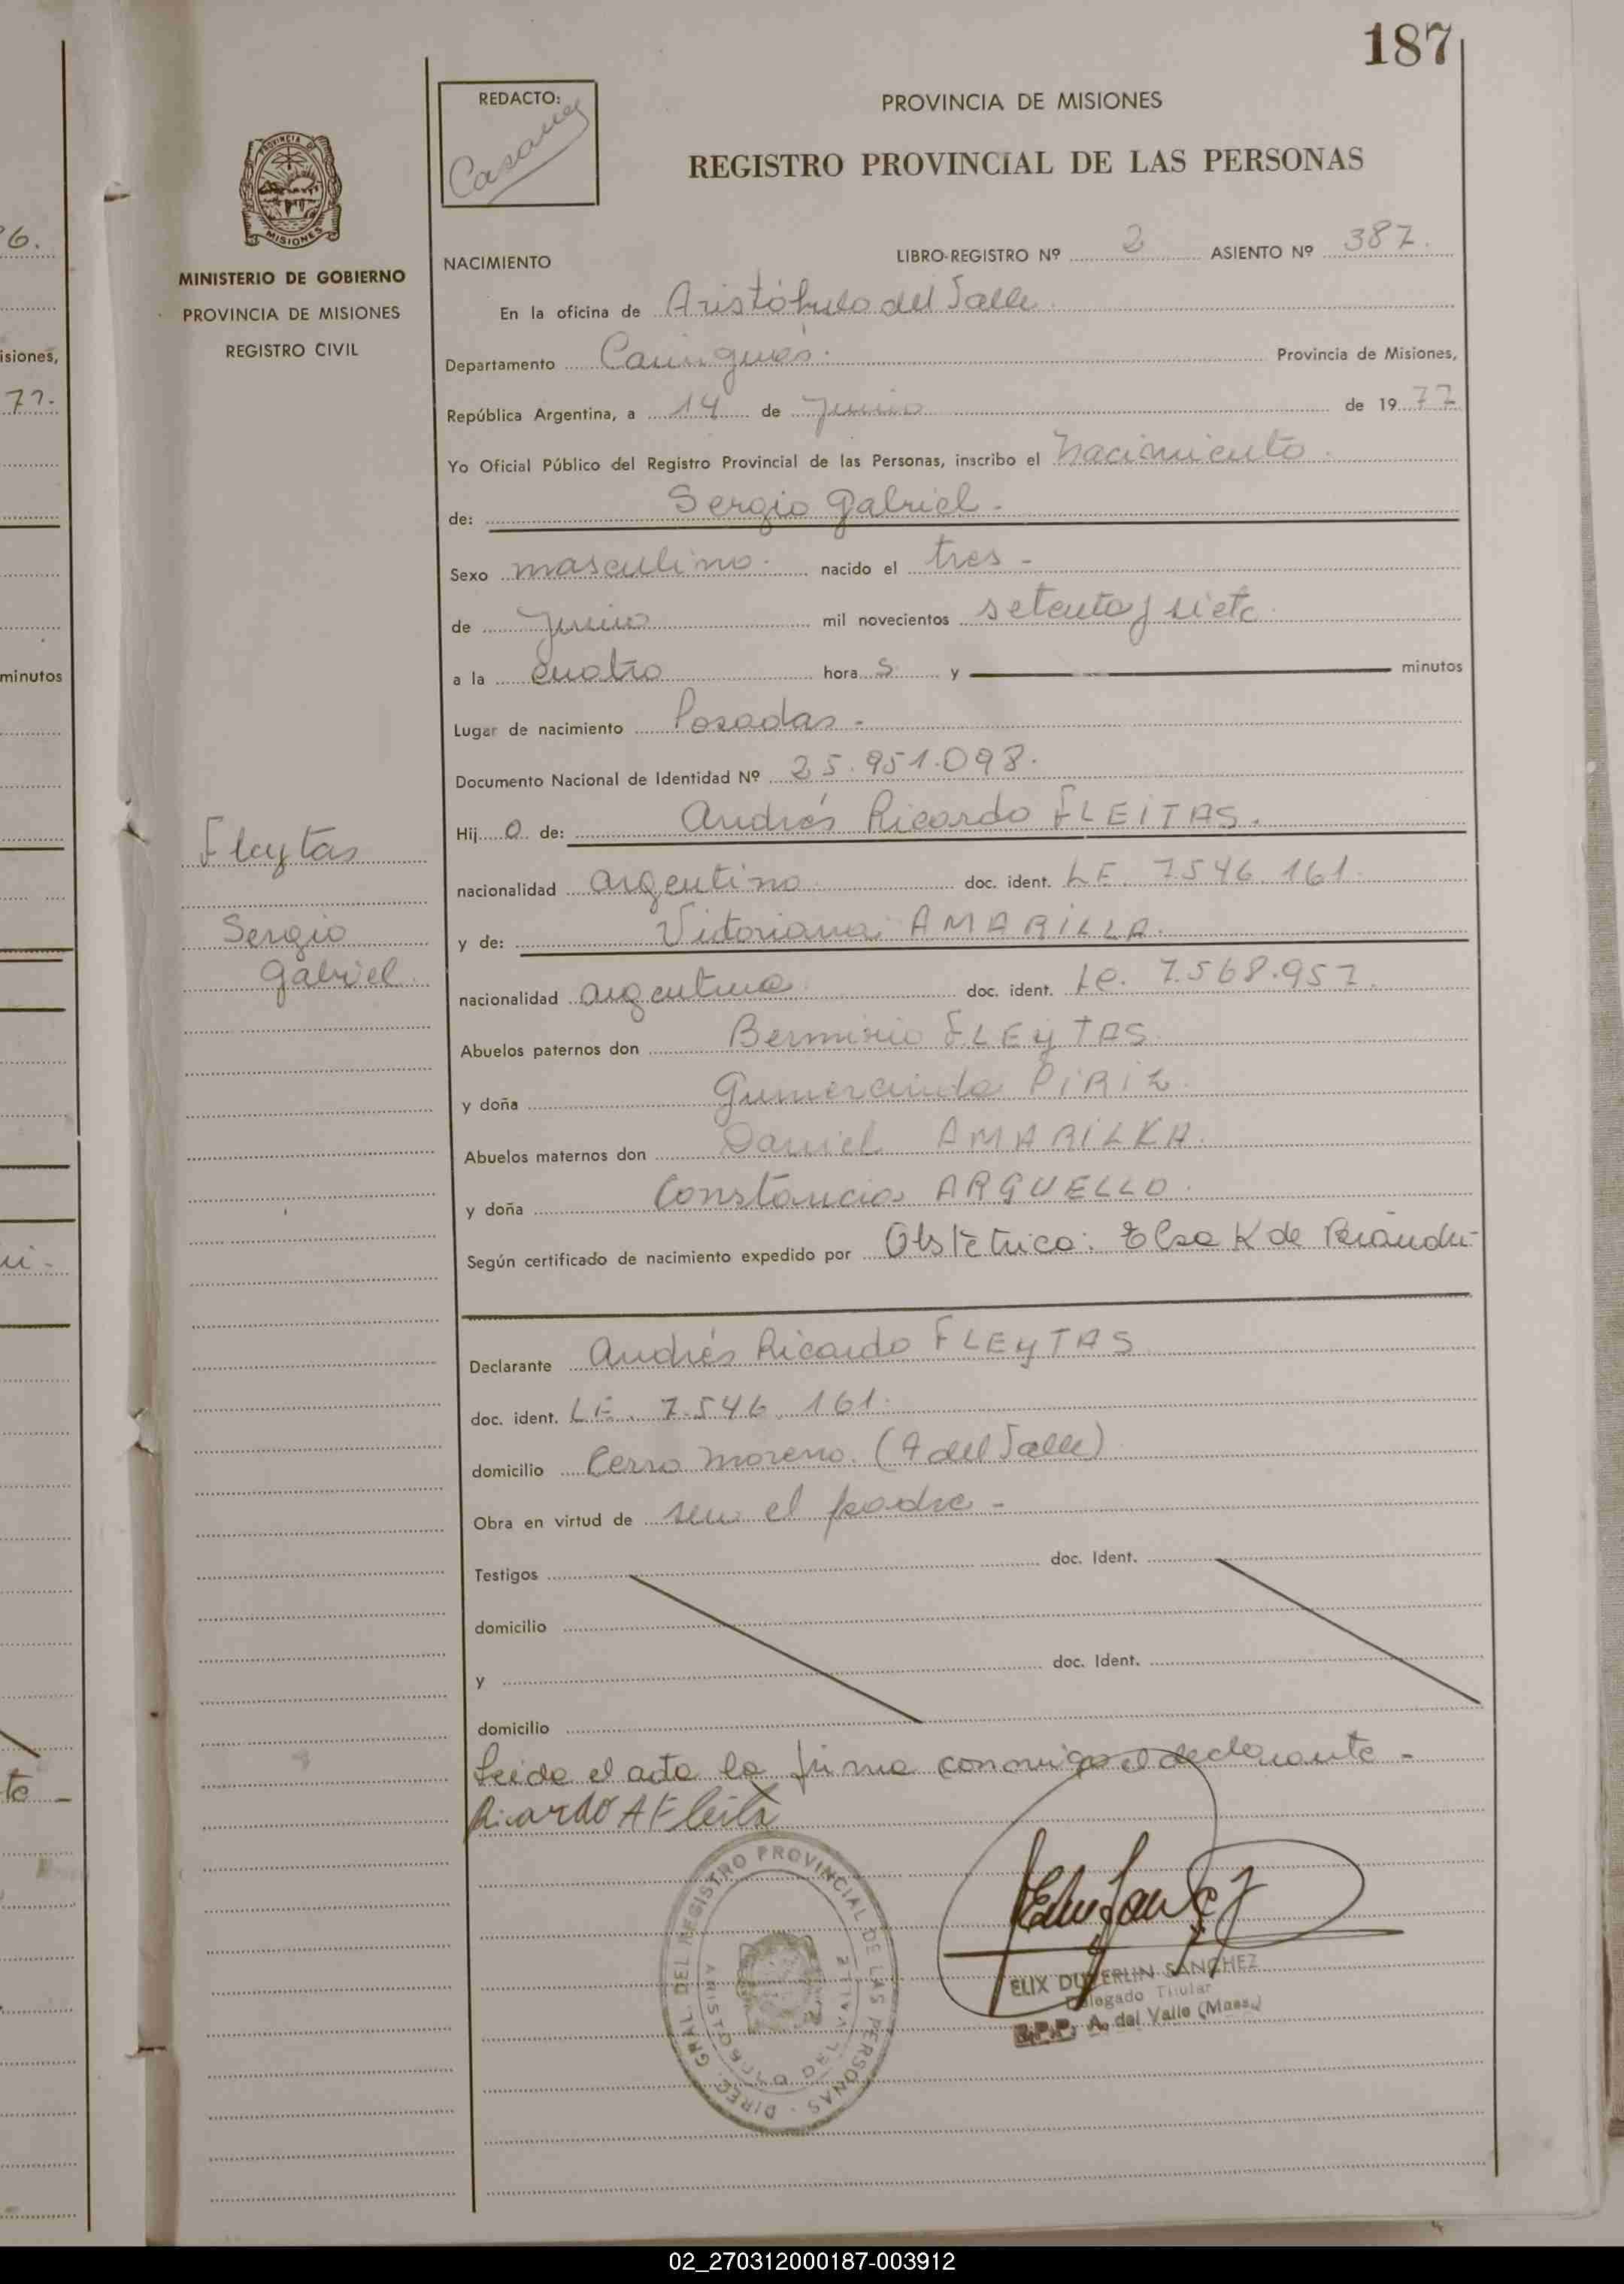 187
REDACTO:
PROVINCIA DE MISIONES
REGISTRO PROVINCIAL DE LAS PERSONAS
PROVINCIA DE
MISIONES
MINISTERIO DE GOBIERNO
PROVINCIA DE MISIONES
REGISTRO CIVIL
NACIMIENTO
LIBRO-REGISTRO Nº 2 ASIENTO Nº 387.
En la oficina de Aristóbulo del Valle
Departamento Cainguás. Provincia de Misiones,
República Argentina, a 14 de Junio de 1977
Yo Oficial Público del Registro Provincial de las Personas, inscribo el Nacimiento
de: Sergio Gabriel -
Sexo masculino. nacido el tres -
de Junio mil novecientos setenta y siete
a la cuatro hora s y minutos
Lugar de nacimiento Posadas -
Documento Nacional de Identidad Nº 25.951.098.
Hij o de: Andrés Ricardo FLEITAS.
nacionalidad argentino doc. ident. LE. 7.546.161.
y de: Victoriana AMARILLA.
nacionalidad argentina doc. ident. Lc. 7.568.957.
Fleytas
Sergio
Gabriel.
Abuelos paternos don FLEYTAS
y doña Gumercinda PIRIZ.
Abuelos maternos don Daniel AMARILLA.
y doña Constancia ARGUELLO.
Según certificado de nacimiento expedido por Obstetrica: Elsa K de
Declarante Andrés Ricardo FLEYTAS
doc. ident. LE. 7.546.161.
domicilio Cerro Moreno. (A del Valle)
Obra en virtud de ser el padre -
Testigos doc. Ident.
domicilio
y doc. Ident.
domicilio
Leida el acta la firma conmigo el declarante -
Ricardo A Fleita
DIREC. GRAL. DEL REGISTRO PROVINCIAL DE LAS PERSONAS
ARISTOBULO DEL VALLE
ELIX DUVERLIN SANCHEZ
Delegado Titular
R.P.P. A. del Valle (Mnes.)
isiones,
77.
minutos
02_270312000187-003912